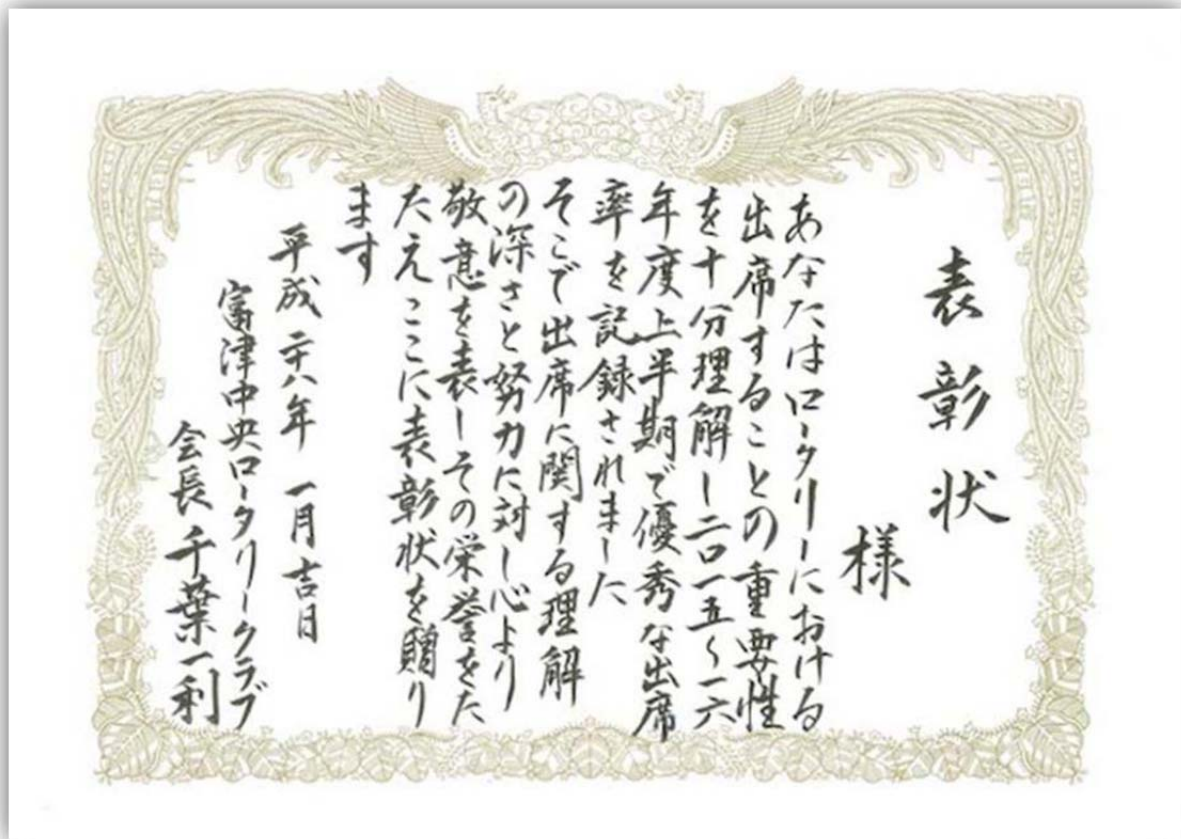 表彰状
様
あなたはロータリーにおける
出席することの重要性
を十分理解し二〇一五〜一六
年度上半期で優秀な出席
率を記録されました
そこで出席に関する理解
の深さと努力に対し心より
敬意を表しその栄誉をた
たえここに表彰状を贈り
ます
平成二十八年 一月吉日
富津中央ロータリークラブ
会長 千葉一利